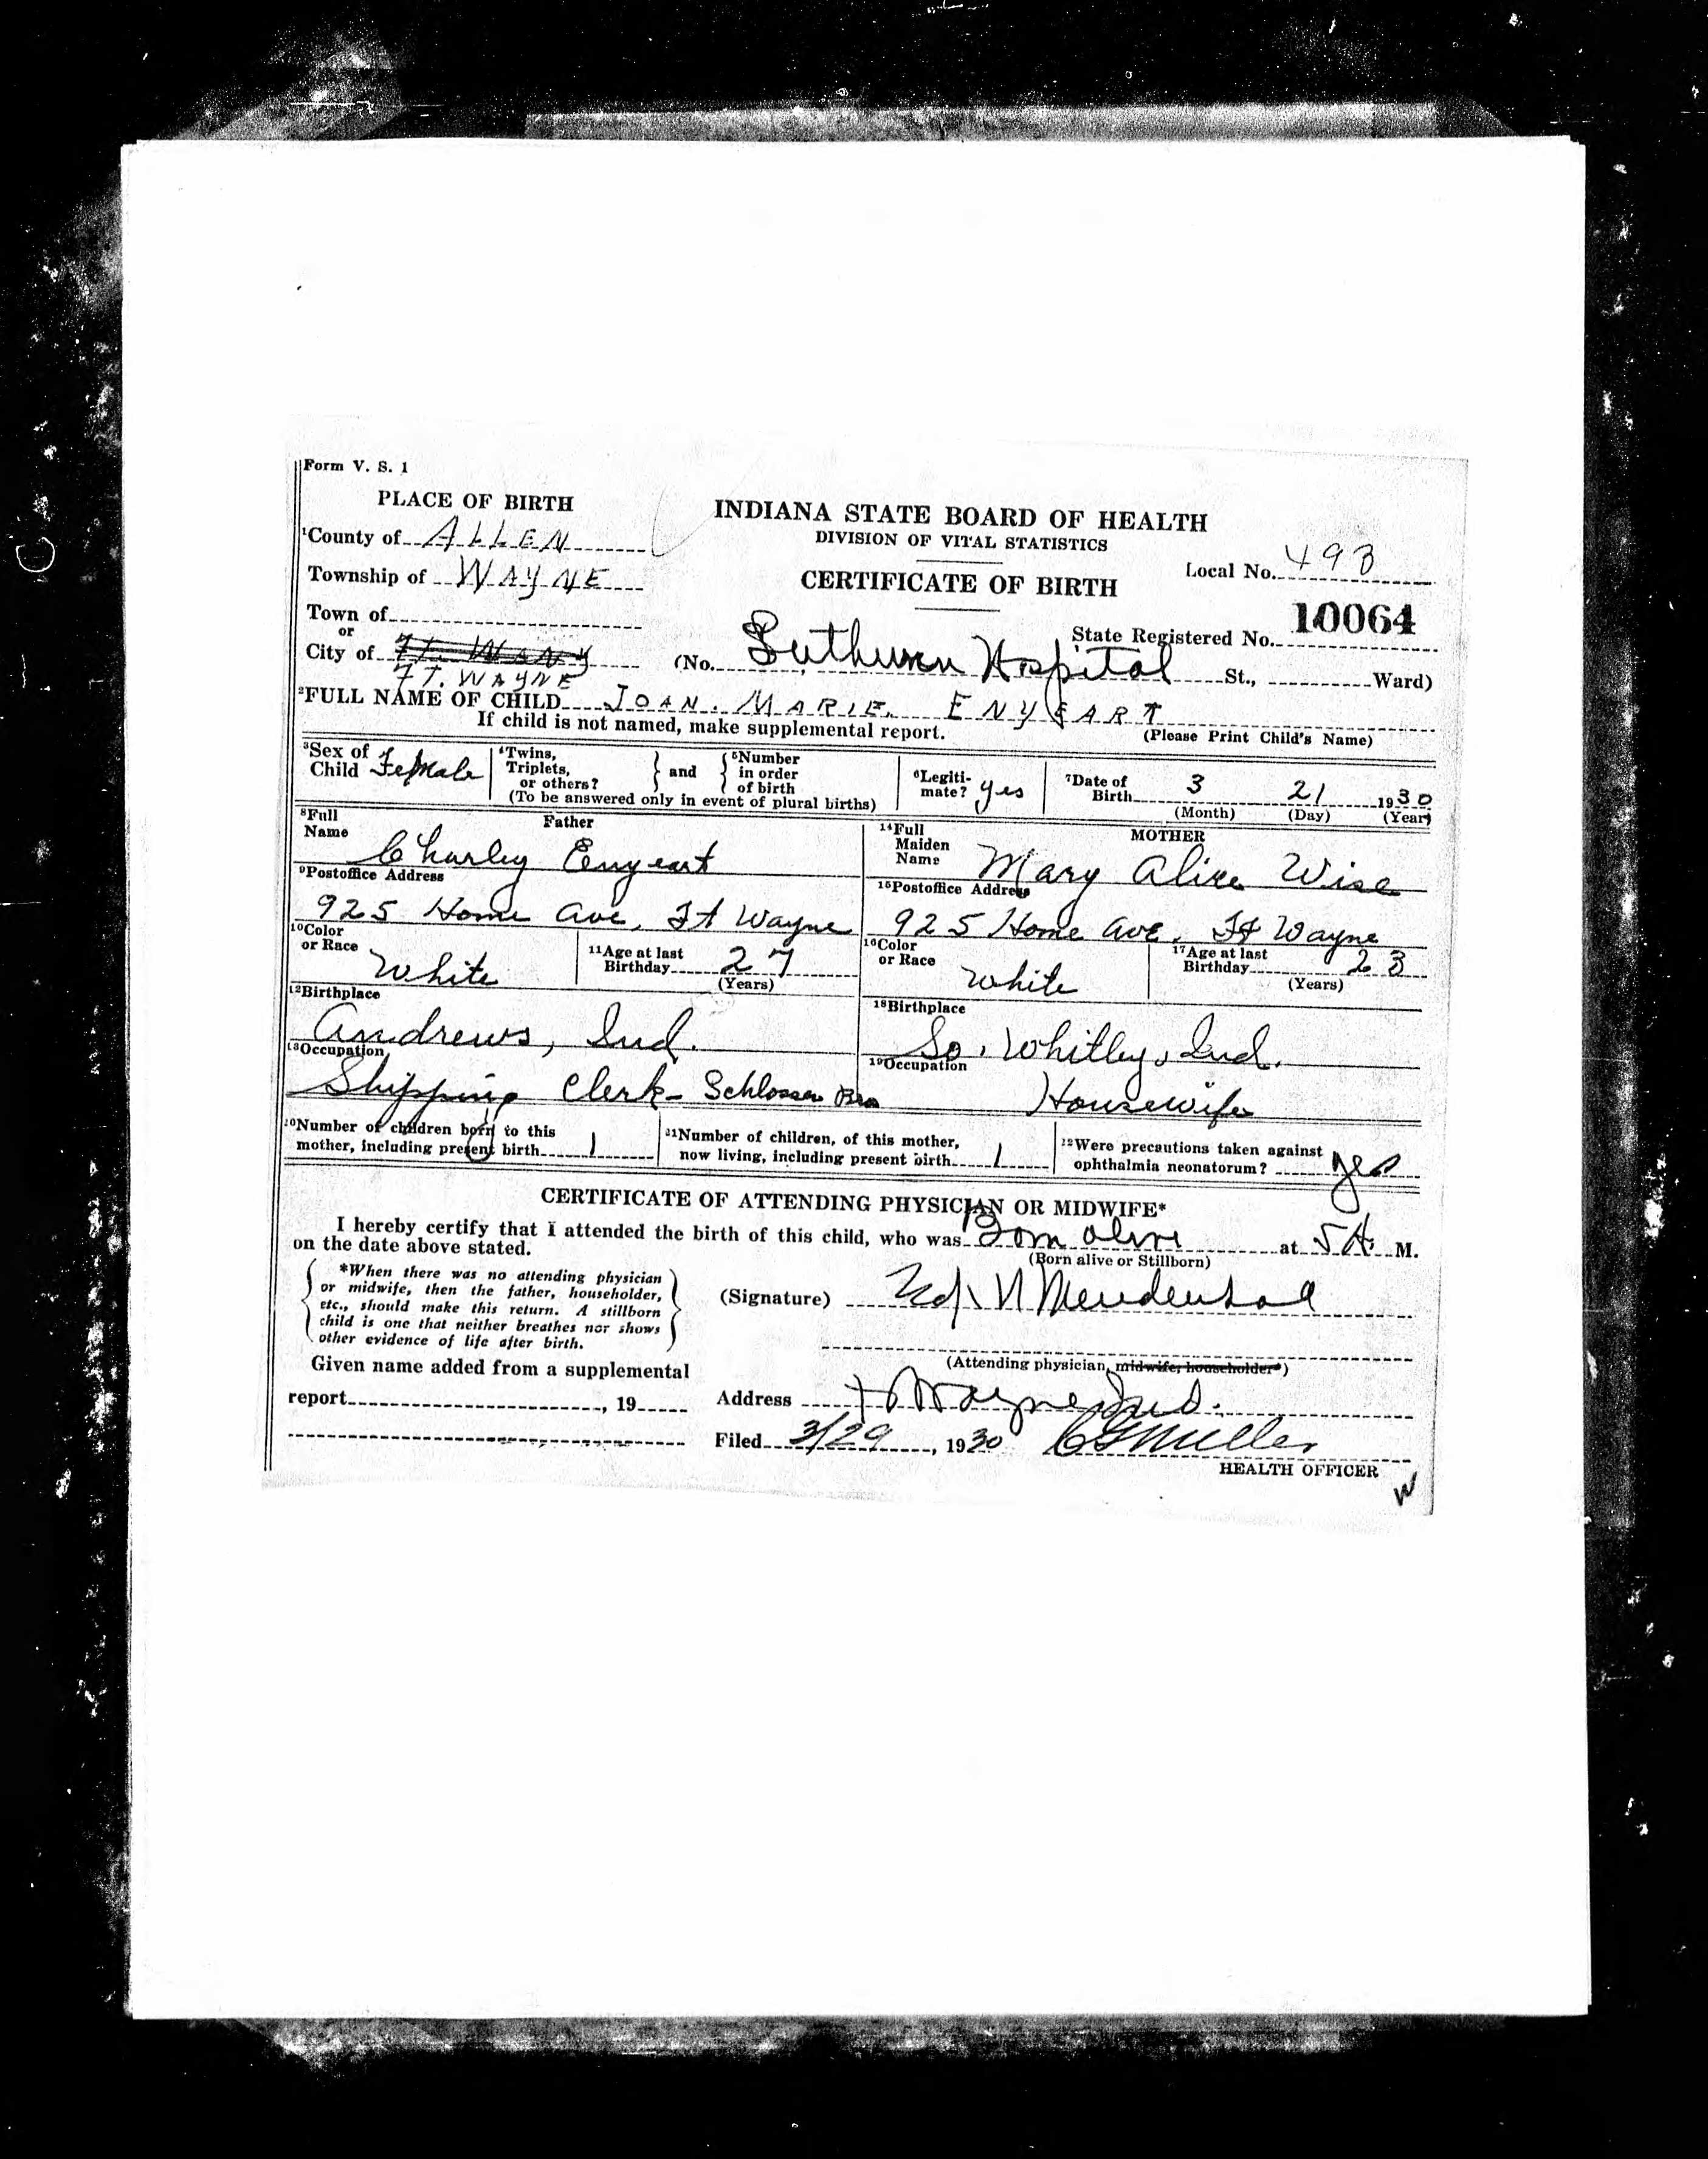 Form V. S. 1
PLACE OF BIRTH
1County of ALLEN
Township of WAYNE
Town of
or
City of Ft. Wany
FT. WAYNE
INDIANA STATE BOARD OF HEALTH
DIVISION OF VITAL STATISTICS
CERTIFICATE OF BIRTH
Local No. 493
State Registered No. 10064
(No. Lutheran Hospital St., Ward)
2FULL NAME OF CHILD JOAN MARIE ENYEART
If child is not named, make supplemental report. (Please Print Child's Name)
3Sex of Child Female
4Twins, Triplets, or others? } and { 5Number in order of birth
(To be answered only in event of plural births)
6Legitimate? yes
7Date of Birth 3 21 1930
(Month) (Day) (Year)
8Full Name Father
Charley Enyeart
9Postoffice Address
925 Home Ave, Ft Wayne
10Color or Race White
11Age at last Birthday 27
(Years)
12Birthplace
Andrews, Ind.
13Occupation
Shipping Clerk - Schlosser Bros
14Full Maiden Name MOTHER
Mary Alice Wise
15Postoffice Address
925 Home Ave, Ft Wayne
16Color or Race White
17Age at last Birthday 23
(Years)
18Birthplace
So. Whitley, Ind.
19Occupation
Housewife
20Number of children born to this mother, including present birth 1
21Number of children, of this mother, now living, including present birth 1
22Were precautions taken against ophthalmia neonatorum? yes
CERTIFICATE OF ATTENDING PHYSICIAN OR MIDWIFE*
I hereby certify that I attended the birth of this child, who was Born alive at 5 A. M.
on the date above stated. (Born alive or Stillborn)
*When there was no attending physician
or midwife, then the father, householder,
etc., should make this return. A stillborn
child is one that neither breathes nor shows
other evidence of life after birth.
(Signature) Mendenhall
(Attending physician, midwife, householder*)
Given name added from a supplemental
report , 19
Address Ft Wayne Ind.
Filed 3/29, 1930 Miller
HEALTH OFFICER
W